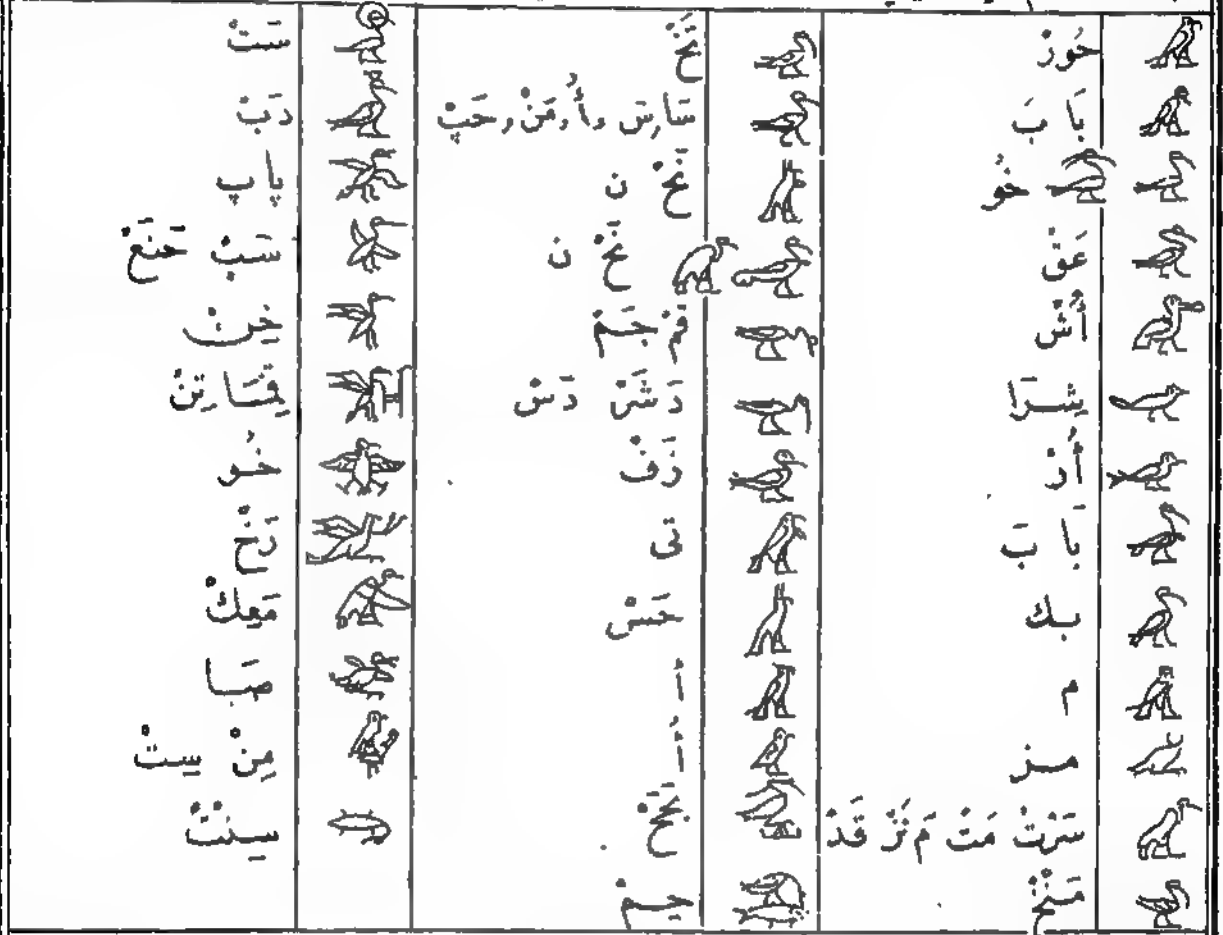 حُوزْ
بَا بَ
خُو
عَقْ
أُشْ
يشَرَا
أُرْ
بَا بَ
بك
م
مز
سَرَتْ مَتْ مَ نَرْ قَدْ
مَنْخْ
نَخْ
سَارِسَ ,أُ,مَنْ,حَپْ
نَخْ ن
نَخْ ن
قمْ جَمْ
دَشَرْ دَسْ
زَفْ
تى
حَسْ
أَ
أُ
نَخْ
جِمْ
سَتْ
رَبْ
پاپ
سَبْ حَنَعْ
خِنْ
خُو
رَخْ
مَعِكْ
صَبا
مِنْ سِتْ
سِنْتْ